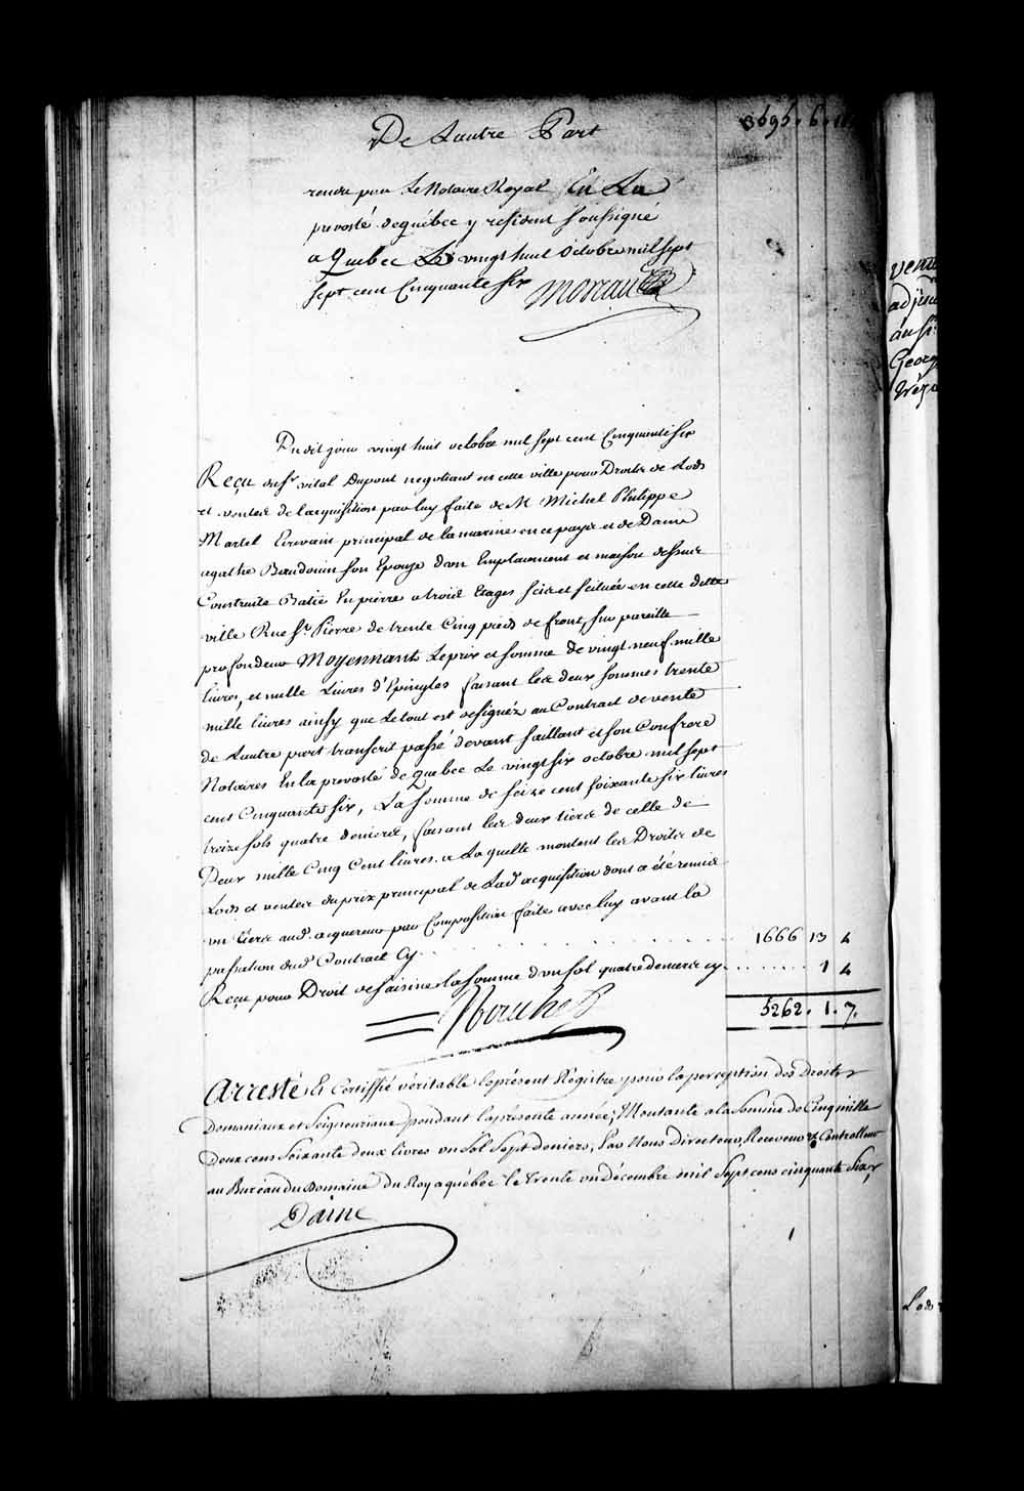 De Lautre Part
3595. 6. 11
rendu par Le Notaire Royal En La
prevosté de québec y residant soussigné
a Quebec Le vingt huit Octobre mil sept
sept cent Cinquante six Moreau
Du dit jour vingt huit octobre mil sept cent Cinquante six
Reçu du Sr. vital Dupont negotiant en cette ville pour Droits de Lods
et ventes de l'acquisition par luy faite de M Michel Philippe
Martel Ecrivain principal de la marine en ce payis et de Dame
agathe Baudouin son Epouse d'un Emplacement et maison dessus
Construite Batie En pierre a trois Etages scise et scituée en cette ditte
ville Rue St. Pierre de trente Cinq pieds de front, sur pareille
profondeur Moyennant Le prix et somme de vingt neuf mille
livres, et mille Livres d'Epingles faisant les deux sommes trente
mille livres ainsy que Le tout est designéz au Contract de vente
de Lautre part transcrit passé devant saillant et son Confrere
Notaires En la prevosté de Quebec Le vingt six octobre mil sept
cent Cinquante six, La somme de seize cent soixante six livres
treize sols quatre deniers, faisant les deux tiers de celle de
Deux mille Cinq Cent livres a Laquelle montent les Droits de
Lods et ventes du prix principal de Lad. acquisition dont a été remis
un tiers aud. acquereur par Composition faite avec luy avant la
passation dud. Contract Cy . . . . . . . . . . 1666 13 4
Reçu pour Droit de saisine la somme d'un sol quatre deniers cy . . . . . . 1 4
5262. 1. 7.
Arresté Et Certiffié véritable le présent Régistre pour la perception des Droits
Domaniaux et Seigneuriaux pendant la présente année; Montante a la Somme de Cinq mille
Deux cens Soixante deux livres un Sol Sept deniers, Par Nous Directeur, Receveur & Controlleur
au Bureau du Domaine du Roy a québec le Trente un décembre mil Sept cens cinquante Six,
Daine
adjuc
au Sr.
Georg
Lods